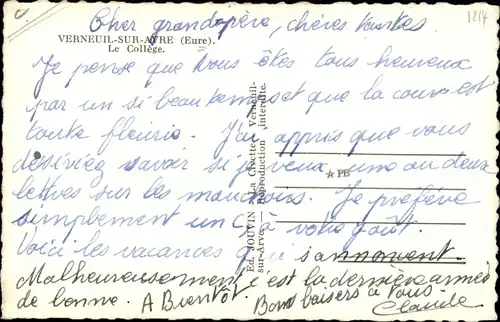 Cher grandpère, chères tantes
1214
VERNEUIL-SUR-AVRE (Eure).
Le Collège.
Je pense que vous êtes tous heureux
par un si beau temps et que la cour est
toute fleurie. J'ai appris que vous
désiriez savoir si je veux une ou deux
lettres sur les mouchoirs. Je préfère
simplement un C à votre goût.
Voici les vacances qui s'annoncent.
Malheureusement c'est la dernière année
de bonne. A Bientôt. Bons baisers à tous.
Claude
Ed. JOUVIN La Civette Verneuil-
sur-Avre. — Reproduction interdite.
PB